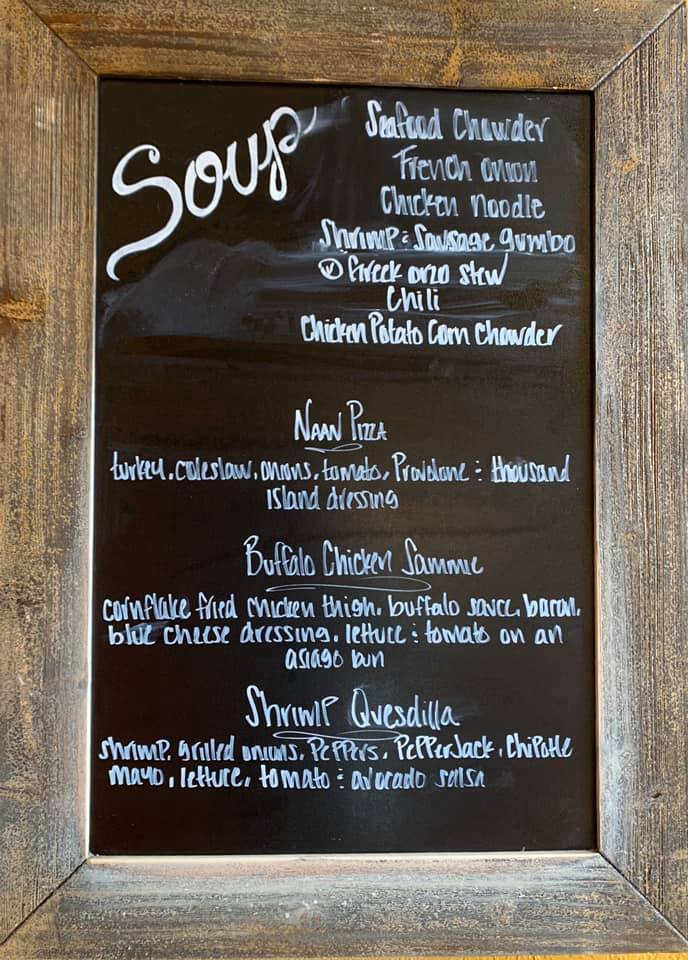 Soup
Seafood Chowder
French onion
Chicken noodle
Shrimp & Sausage gumbo
Ⓥ Greek orzo stew
Chili
Chicken Potato Corn Chowder
Naan Pizza
turkey, coleslaw, onions, tomato, Provolone & thousand
Island dressing
Buffalo Chicken Sammie
cornflake fried chicken thigh, buffalo sauce, bacon,
blue cheese dressing, lettuce & tomato on an
asiago bun
Shrimp Quesdilla
shrimp, grilled onions, Peppers, PepperJack, Chipotle
mayo, lettuce, tomato & avocado salsa